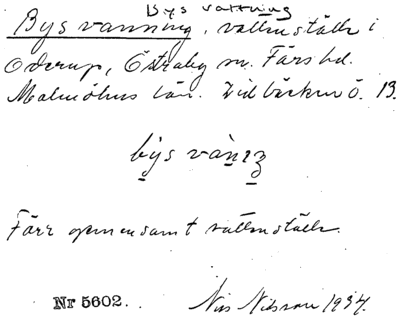 Bys vattning
Bys vanning, vattenställe i
Oderup, Östraby sn. Färs hd.
Malmöhus län. Vid bäcken ö. 13.
bys vàneʒ
Förr gemensamt vattenställe.
Nr 5602. Nils Nilsson 1934.